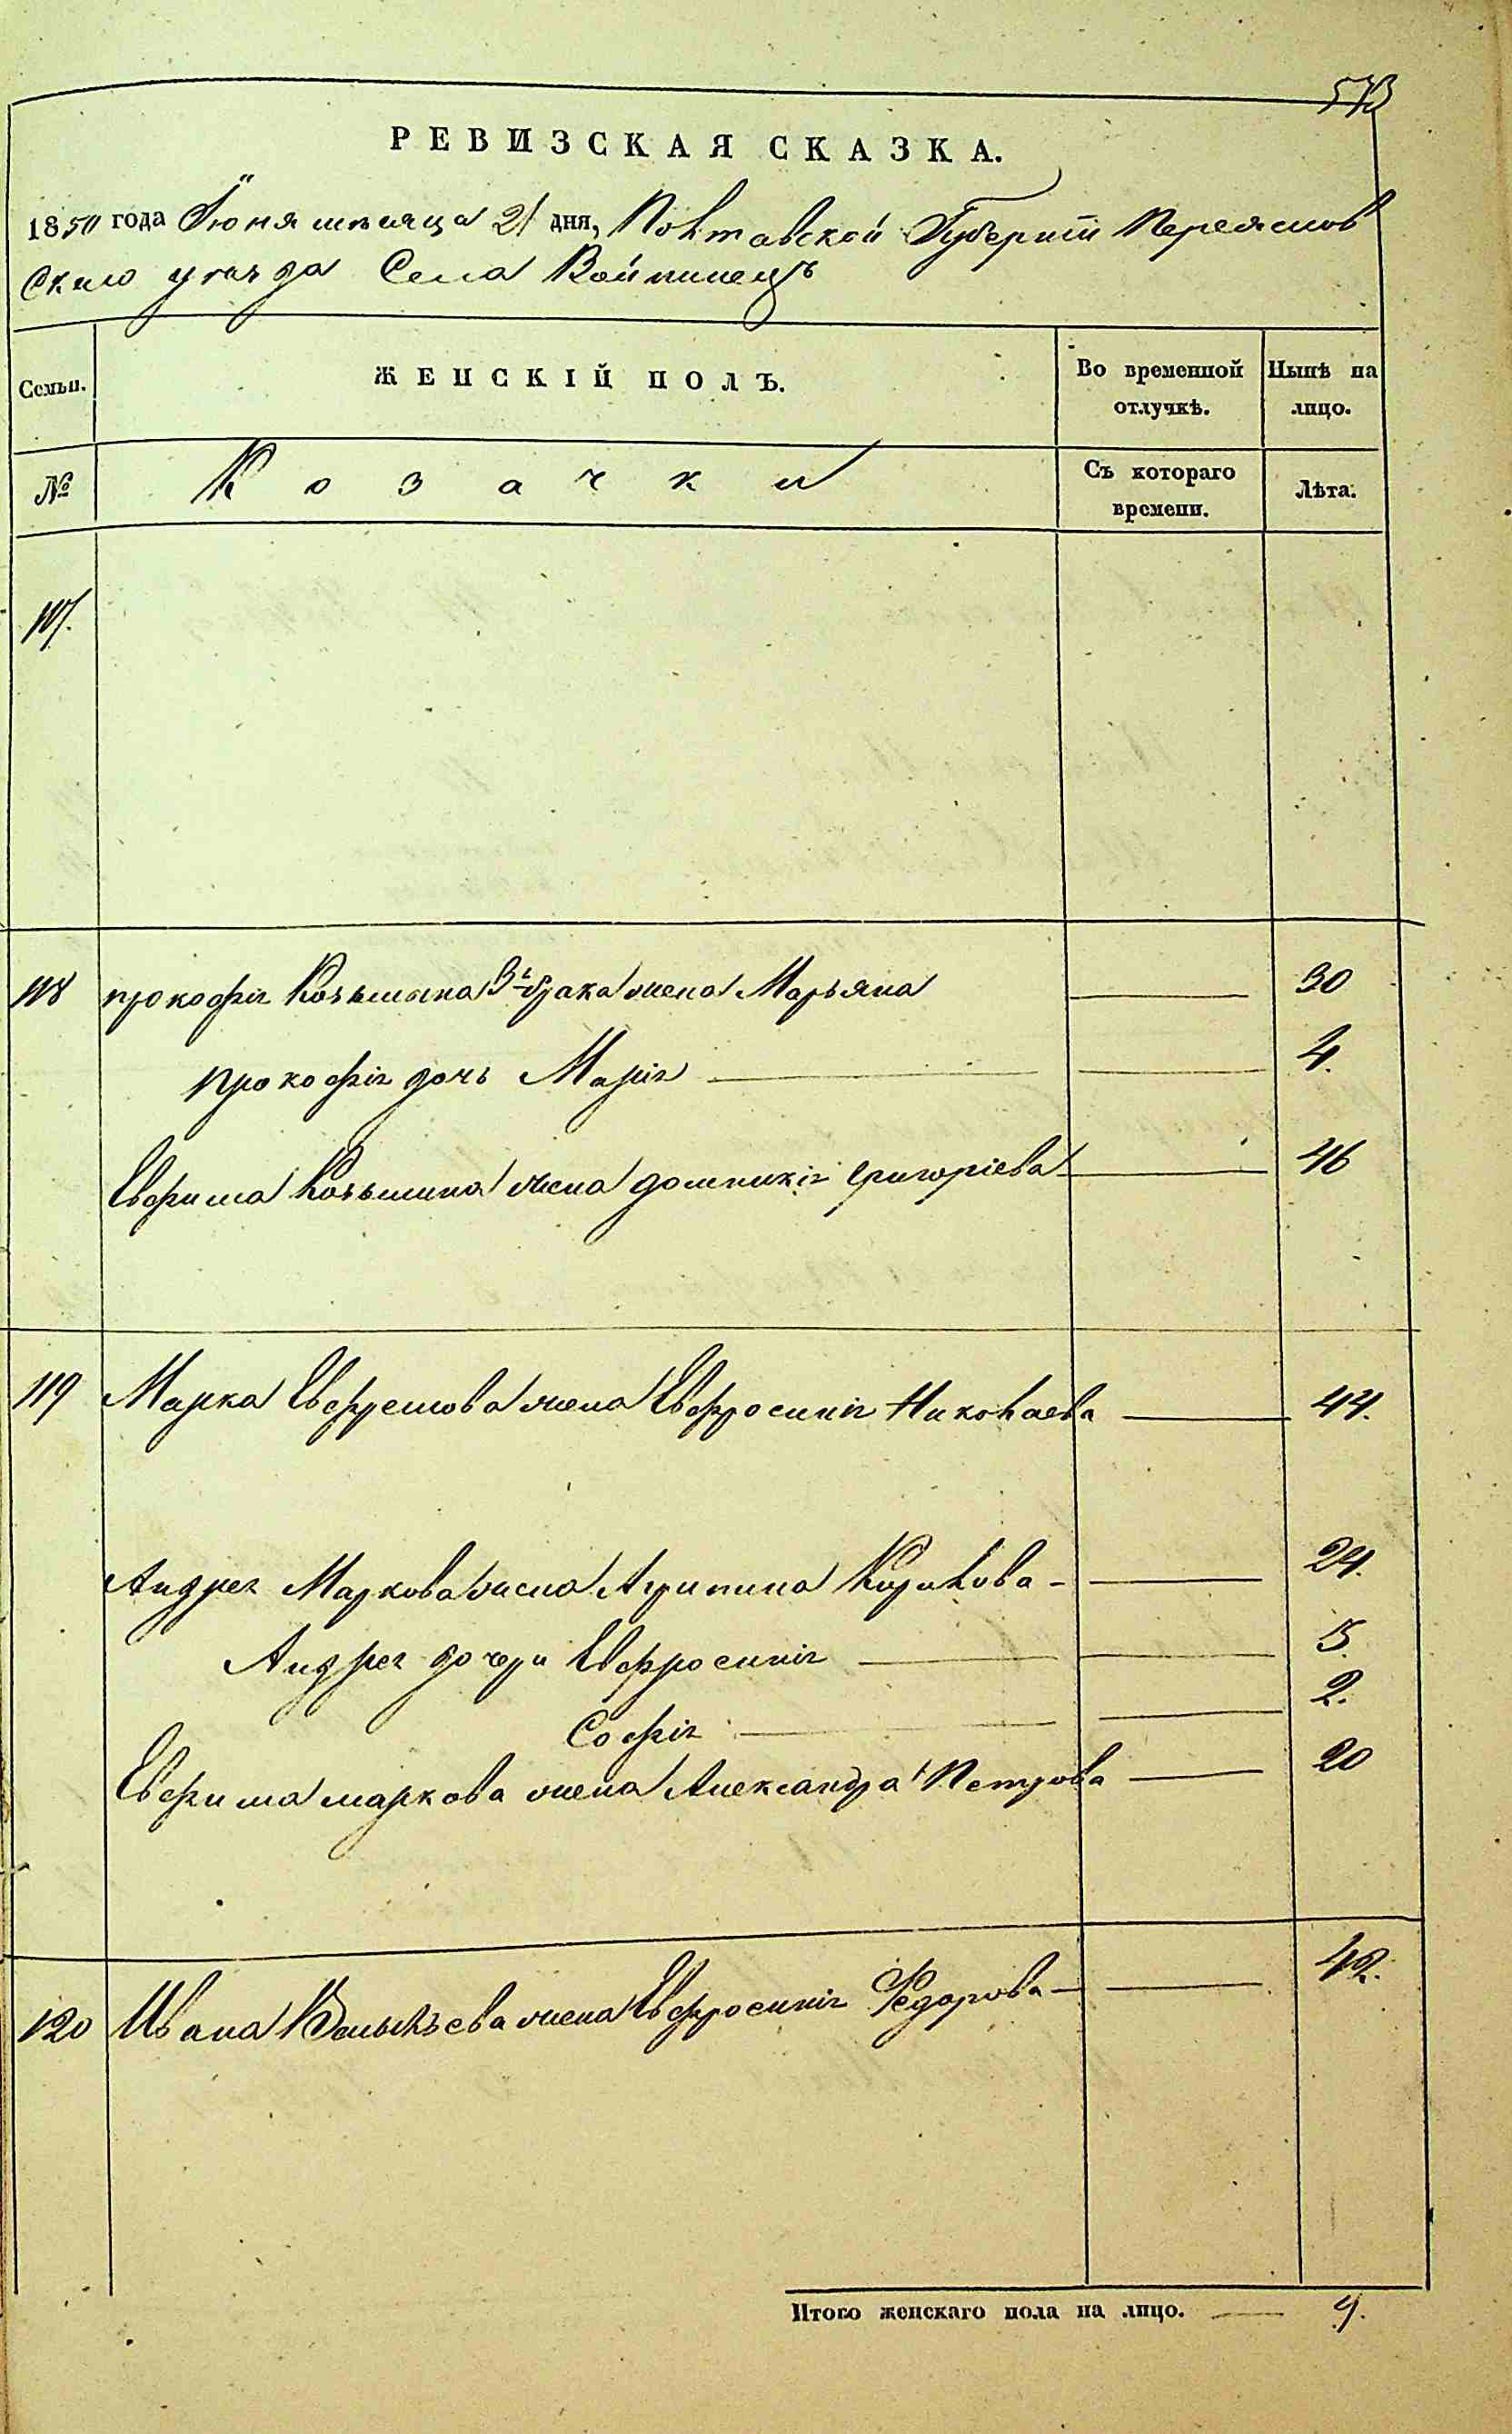 573
РЕВИЗСКАЯ СКАЗКА.
1850 года Іюня мѣсяца 21 дня, Полтавской Губерніи Переяслов
Скаго уѣзда Села Войтовецъ
Семьи. ЖЕНСКІЙ ПОЛЪ. Во временной отлучкѣ. Нынѣ на лицо.
№ Козачки Съ котораго времени. Лѣта.
117.
118 прокофія Козьмина 3го брака жена Марьяна 30
прокофія дочь Марія 4.
Евфима Козьмина жена домникія григоріева 46
119 Марка Ефремова жена Евфросинія Николаева 44.
Андрея Маркова жена Агрипина Кирилова 24.
Андрея дочери Евфросинія 5
Софія 2.
Евфима маркова жена Александра Петрова 20
120 Ивана жена Евфросинія Федорова 42.
Итого женскаго пола на лицо. 9.